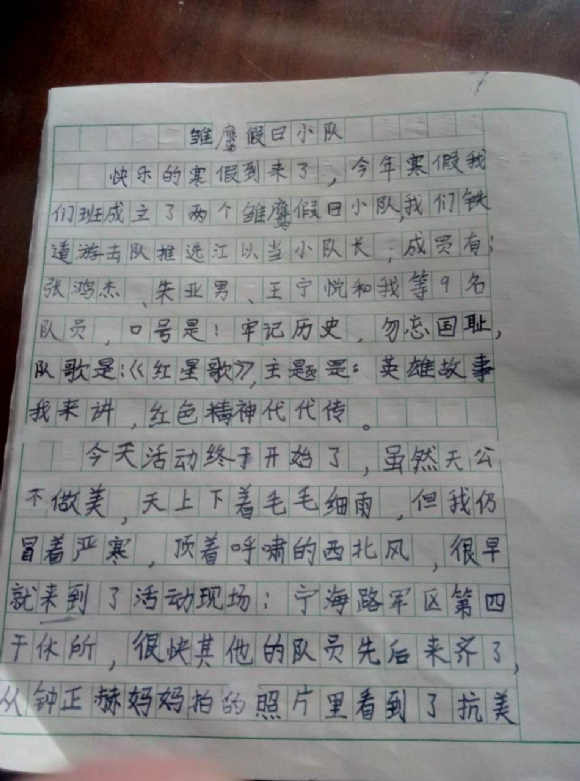 雏鹰假日小队
快乐的寒假到来了，今年寒假我
们班成立了两个雏鹰假日小队，我们铁
道游击队推选江以当小队长，成员有：
张鸿杰、朱亚男、王宁悦和我等9名
队员，口号是：牢记历史，勿忘国耻，
队歌是：《红星歌》，主题是：英雄故事
我来讲，红色精神代代传。
今天活动终于开始了，虽然天公
不做美，天上下着毛毛细雨，但我仍
冒着严寒，顶着呼啸的西北风，很早
就来到了活动现场：宁海路军区第四
干休所，很快其他的队员先后来齐了，
从钟正赫妈妈拍的照片里看到了抗美